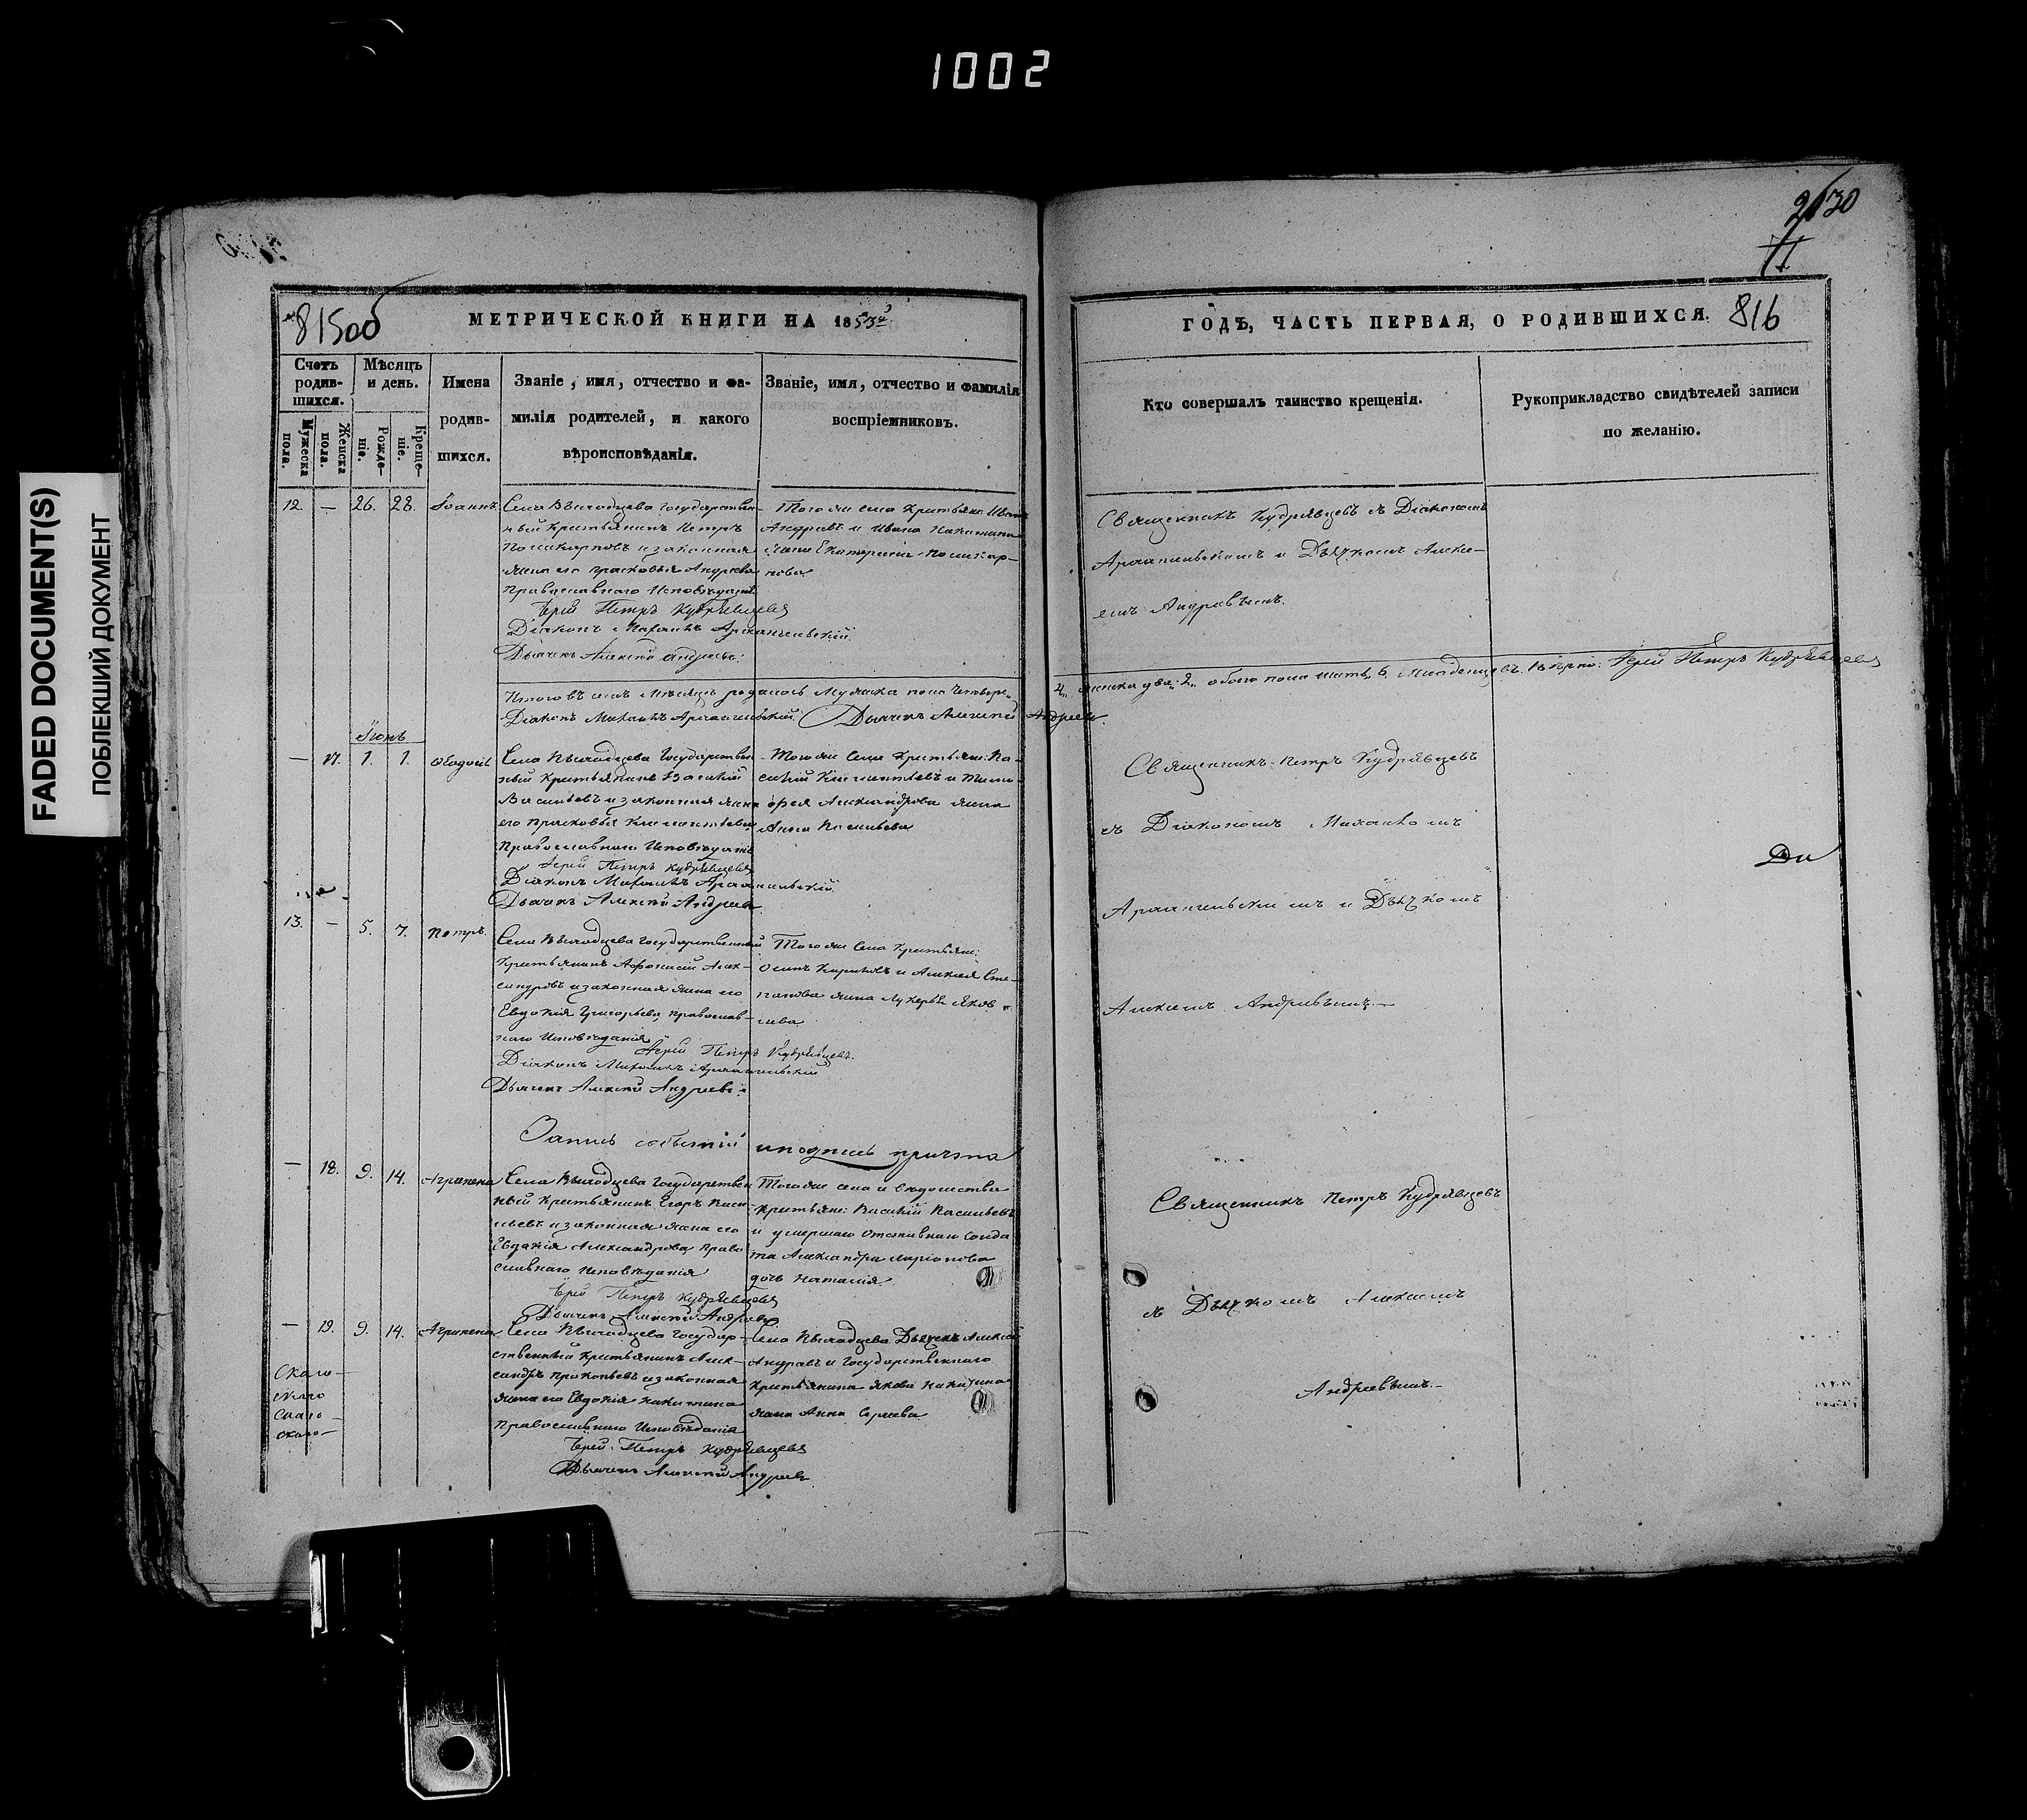 1002
FADED DOCUMENT(S)
ПОБЛЕКШИЙ ДОКУМЕНТ
2630
815об
МЕТРИЧЕСКОЙ КНИГИ НА 1853й
ГОДЪ, ЧАСТЬ ПЕРВАЯ, О РОДИВШИХСЯ. 816
Счетъ родив-шихся.
Мужеска пола.
Женска пола.
Мѣсяцъ и день.
Рожде-ніе.
Креще-ніе.
Имена
родив-
шихся.
Званіе, имя, отчество и фа-
милія родителей, и какого
вѣроисповѣданія.
Званіе, имя, отчество и фамилія
воспріемниковъ.
Кто совершалъ таинство крещенія.
Рукоприкладство свидѣтелей записи
по желанію.
12. — 26. 28. Іоаннъ.
Села государствен-
ный крестьянинъ Петръ
Поликарповъ и законная
жена его Прасковья Андреева
Православнаго Исповѣданія
Іерей Петръ Кудрявцевъ
Діаконъ Михаилъ Архангельскій
Дьячекъ Алексей Андреевъ.
Того же села крестьяне: Иванъ
Андреевъ и Ивана Никитина
жена Екатерина Поликар-
пова
Священникъ Кудрявцевъ съ Діакономъ
Архангельскимъ и Дьячкомъ Алексе-
емъ Андреевымъ.
Итого въ семъ Мѣсяцѣ родилось Мужска пола четыре
4, женска два: 2, обоего пола шесть 6, младенцевъ. Іерей Петръ Кудрявцевъ
Діаконъ Михаилъ Архангельскій Дьячекъ Алексей Андреевъ.
Іюнь
— 17. 1. 1.
Села Государствен-
ный крестьянинъ Василій
Васильевъ и законная жена
его Прасковья Климентьева
Православнаго Исповѣданія
Іерей Петръ Кудрявцевъ
Діаконъ Михаилъ Архангельскій
Дьячекъ Алексей Андреевъ
Того же села крестьяне: Ва-
силій Климентьевъ и Тимо-
фея Александрова жена
Анна Васильева
Священникъ Петръ Кудрявцевъ
съ Діакономъ Михаиломъ
Ди
Архангельскимъ и Дьячкомъ
Алексеемъ Андреевымъ.—
13. — 5. 7. Петръ.
Села Государственный
Крестьянинъ Афонасій Алек-
сандровъ и законная жена его
Евдокія Григорьева, православ-
наго Исповѣданія
Іерей Петръ Кудрявцевъ.
Діаконъ Михаилъ Архангельскій
Дьячекъ Алексей Андреевъ
Того же Села Крестьяне:
Осипъ Кириловъ и Алексея Сте-
панова жена Лукерья Яков-
лева
Запись событій и подпись причта
— 18. 9. 14. Агрипена
Села Государствен
ный Крестьянинъ Егоръ Васи-
льевъ и законная жена его
Евдокія Александрова право-
славнаго исповѣданія
Іерей Петръ Кудрявцевъ
Дьячекъ Алексей Андреевъ
Того же села и
крестьяне: Василій Васильевъ
и умершаго отставнаго солда
та Александра Ларіонова
дочь Наталія
Священникъ Петръ Кудрявцевъ
съ Дьячкомъ Алексеемъ
Андреевымъ.—
— 19. 9. 14. Агрипена
Села Государ-
ственный Крестьянинъ Алек-
сандръ Прокопьевъ и законная
жена его Евдокія Никитина
Православнаго Исповѣданія
Іерей Петръ Кудрявцевъ
Дьячекъ Алексей Андреевъ
Села Дьячекъ Алексей
Андреевъ и Государственнаго
крестьянина Якова Никитина
жена Анна Сергеева